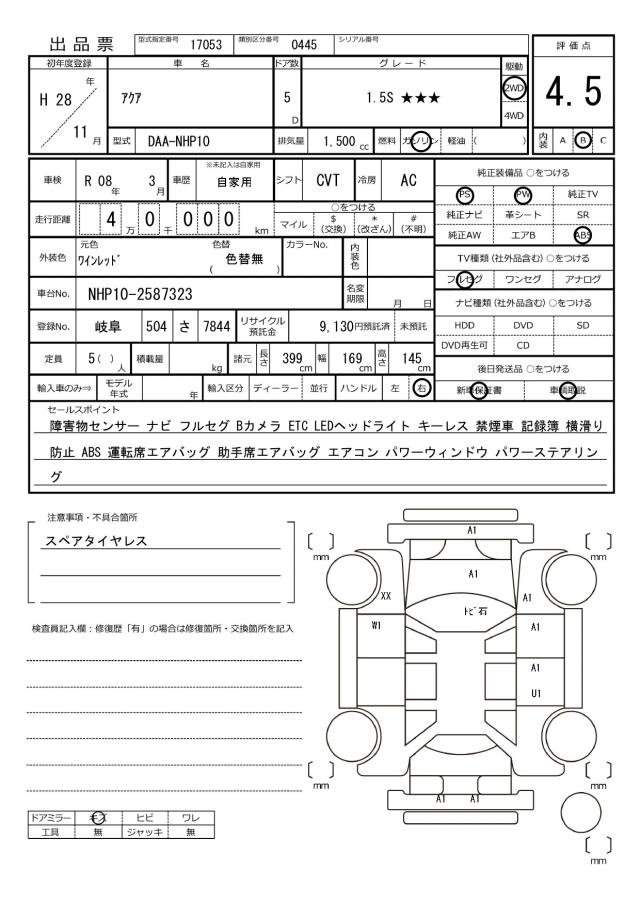 出品票
型式指定番号 17053 類別区分番号 0445 シリアル番号
評価点
4.5
内装 A B C
初年度登録 車名 ドア数 グレード 駆動
H 28 年 11 月
アクア
5 D
1.5S ★★★
2WD
4WD
型式 DAA-NHP10 排気量 1.500 cc 燃料 ガソリン 軽油 ( )
車検 R 08 年 3 月 車歴 ※未記入は自家用 自家用 シフト CVT 冷房 AC
走行距離 4 万 0 千 0 0 0 km
○をつける
マイル $ (交換) * (改ざん) # (不明)
外装色 元色 ワインレッド 色替 色替無 ( ) カラーNo. 内装色
車台No. NHP10-2587323 名変期限 月 日
登録No. 岐阜 504 さ 7844 リサイクル預託金 9,130円預託済 未預託
定員 5( ) 人 積載量 kg 諸元 長さ 399 cm 幅 169 cm 高さ 145 cm
輸入車のみ⇒ モデル年式 年 輸入区分 ディーラー 並行 ハンドル 左 右
純正装備品 ○をつける
PS PW 純正TV
純正ナビ 革シート SR
純正AW エアB ABS
TV種類(社外品含む)○をつける
フルセグ ワンセグ アナログ
ナビ種類(社外品含む)○をつける
HDD DVD SD
DVD再生可 CD
後日発送品 ○をつける
新車保証書 車輌取説
セールスポイント
障害物センサー ナビ フルセグ Bカメラ ETC LEDヘッドライト キーレス 禁煙車 記録簿 横滑り
防止 ABS 運転席エアバッグ 助手席エアバッグ エアコン パワーウィンドウ パワーステアリン
グ
注意事項・不具合箇所
スペアタイヤレス
検査員記入欄:修復歴「有」の場合は修復箇所・交換箇所を記入
ドアミラー キズ ヒビ ワレ
工具 無 ジャッキ 無
A1
〔 〕 mm
〔 〕 mm
A1
XX
A1
トビ石
W1
A1
A1
U1
〔 〕 mm
〔 〕 mm
A1 A1
〔 〕 mm